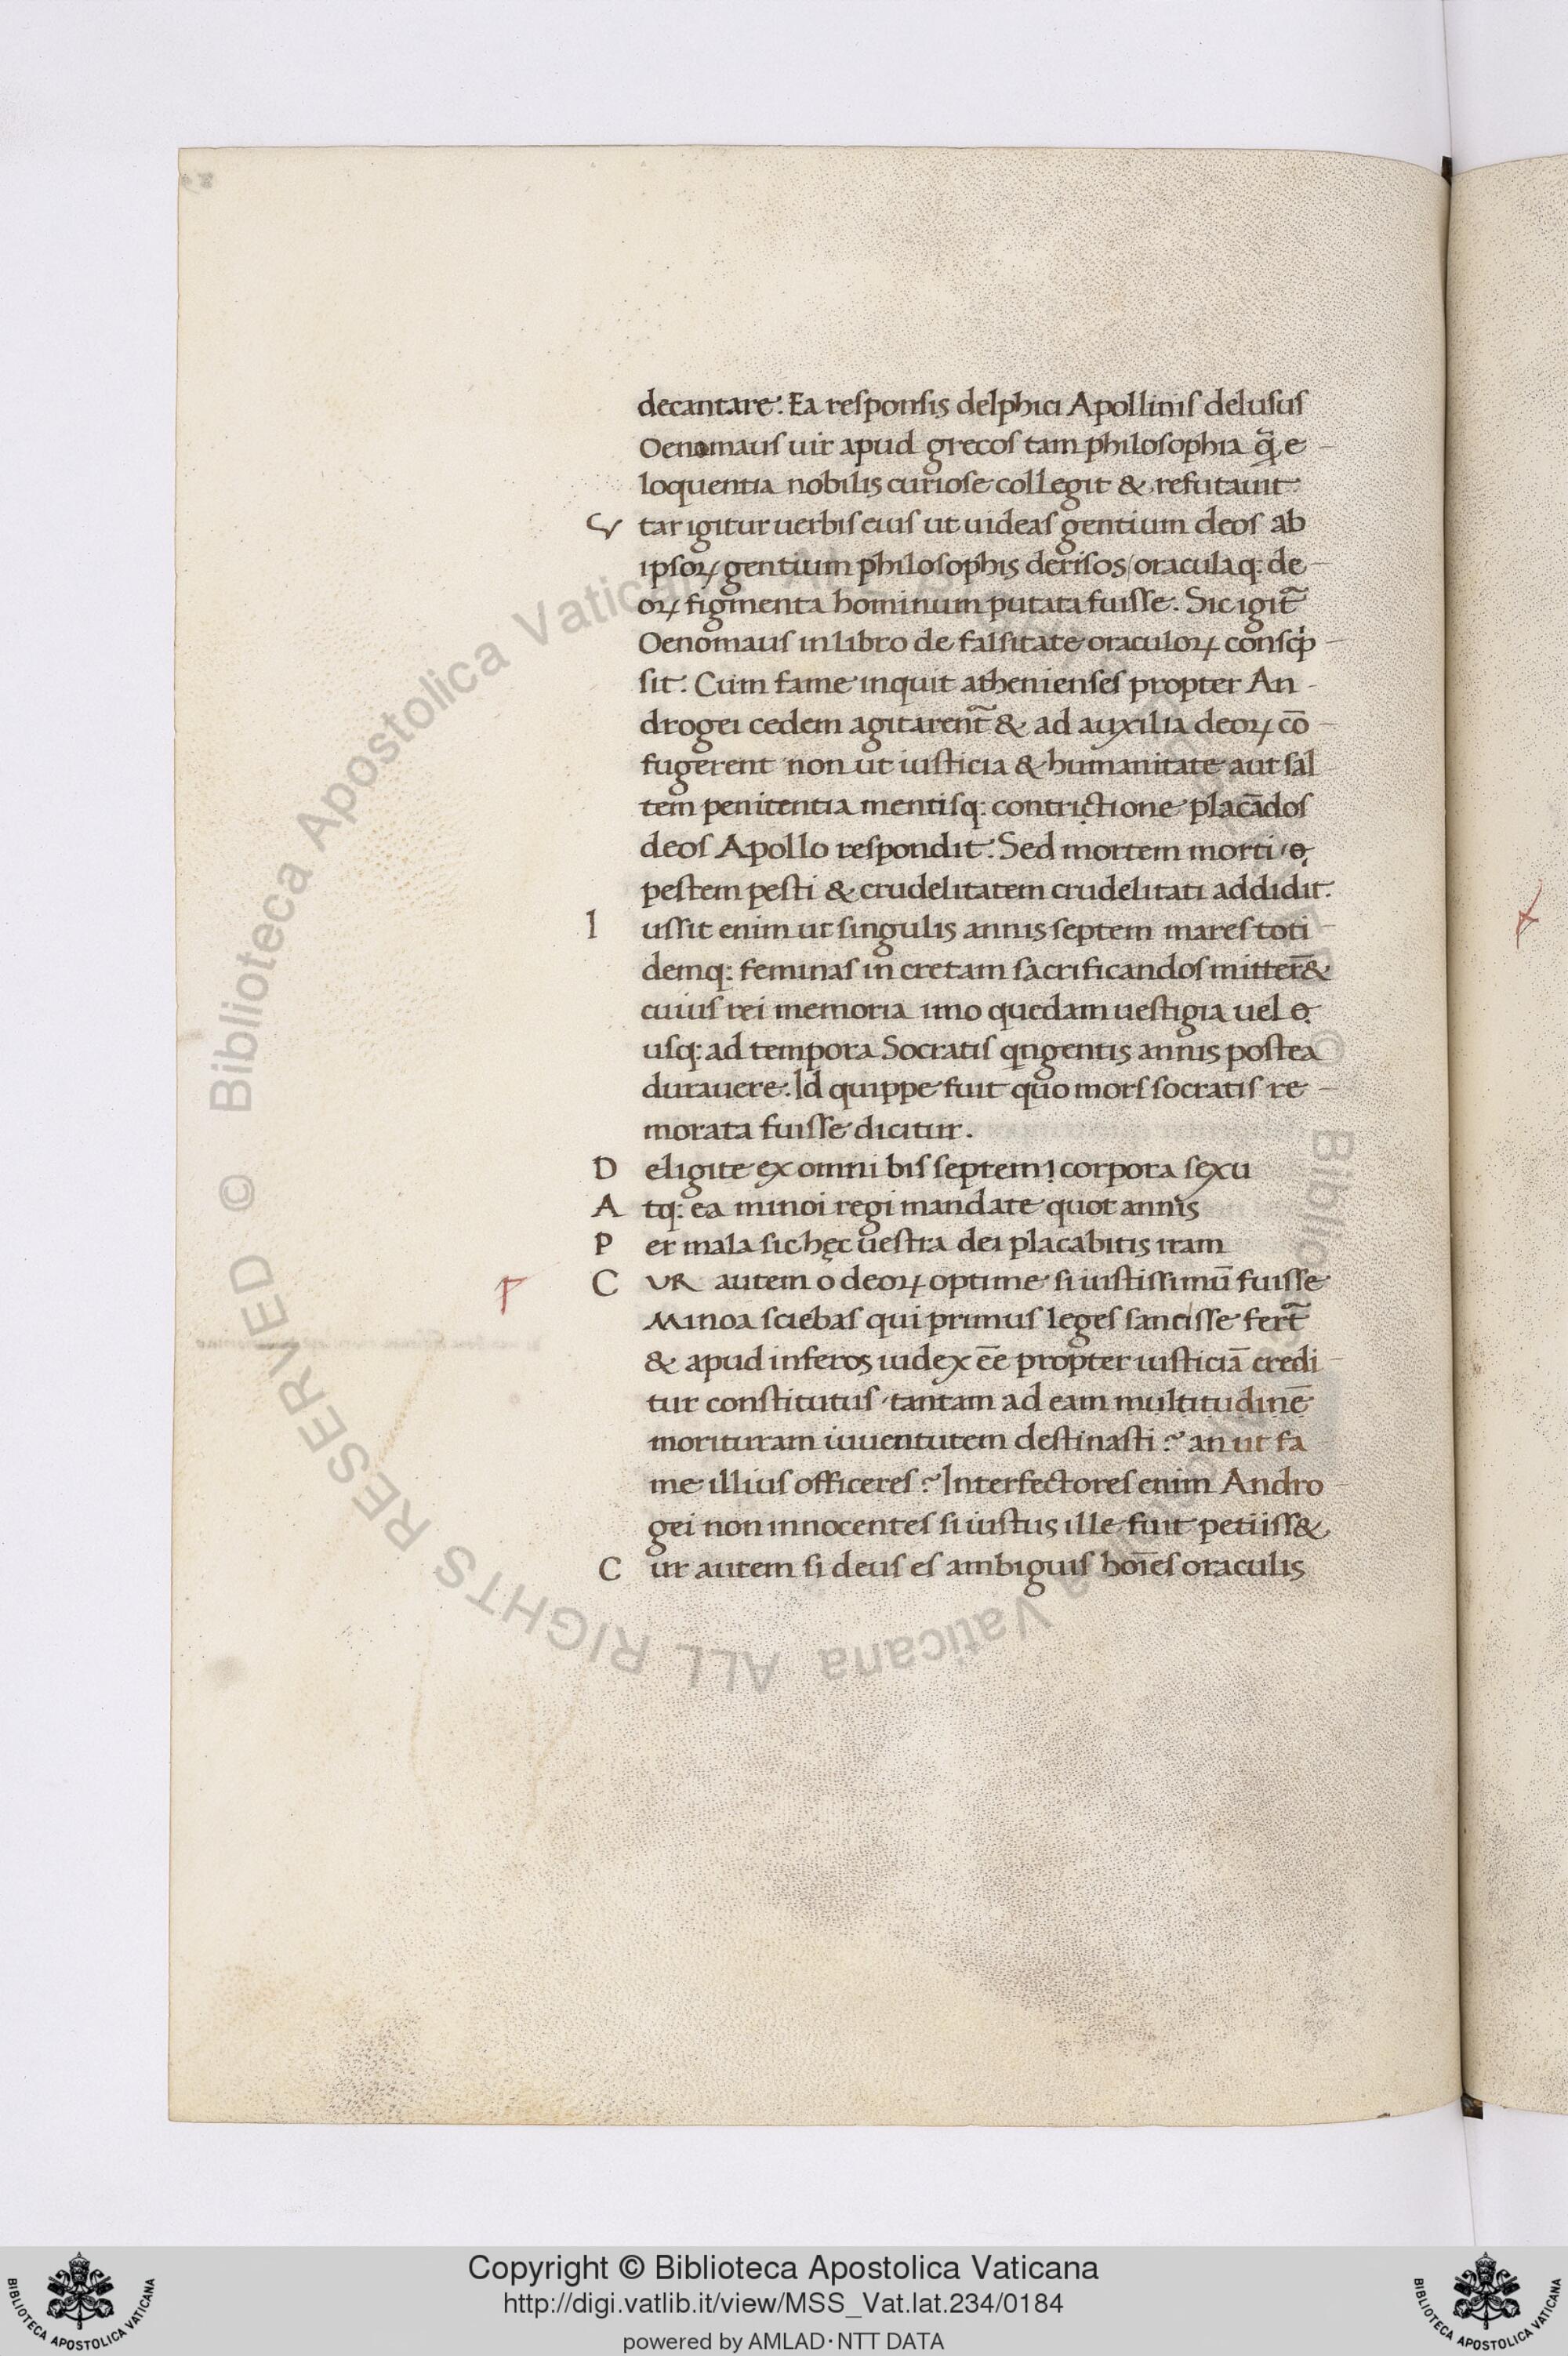 decantare. Ea responsis delphici Apollinis delusus
Oenomaus uir apud grecos tam philosophia q̃ e
loquentia nobilis curiose collegit & refutauit.
V tar igitur uerbis eius ut uideas gentium deos ab
ipsoꝝ gentium philosophis derisos / oraculaq: de
oꝝ figmenta hominum putata fuisse. Sic igit̃
Oenomaus in libro de falsitate oraculoꝝ conscp̍
sit. Cum fame inquit athenienses propter An
drogei cedem agitarent̃ & ad auxilia deoꝝ cō
fugerent non ut iusticia & humanitate aut sal
tem penitentia mentisq: contrictione placādos
deos Apollo respondit. Sed mortem morti / &
pestem pesti & crudelitatem crudelitati addidit.
I ussit enim ut singulis annis septem mares toti
demq: feminas in cretam sacrificandos mitter̄&
cuius rei memoria imo quedam uestigia uel
usq: ad tempora Socratis qngentis annis postea
durauere. Id quippe fuit quo mors socratis re
morata fuisse dicitur.
D eligite ex omni bis septem corpora sexu
A tq: ea minoi regi mandate quot annis
P er mala sic hęc uestra dei placabitis iram
C VR autem o deoꝝ optime si iustissimū fuisse
Minoa sciebas qui primus leges sancisse fert̃
& apud inferos iudex ēe propter iusticiā credi
tur constitutus tantam ad eam multitudinē
morituram iuuentutem destinasti? an ut fa
me illius officeres? Interfectores enim Andro
gei non innocentes si iustus ille fuit petiiss&
C ur autem si deus es ambiguis hoīes oraculis
© Biblioteca Apostolica Vaticana ALL RIGHTS RESERVED
Copyright © Biblioteca Apostolica Vaticana
http://digi.vatlib.it/view/MSS_Vat.lat.234/0184
powered by AMLAD·NTT DATA
BIBLIOTECA APOSTOLICA VATICANA
BIBLIOTECA APOSTOLICA VATICANA